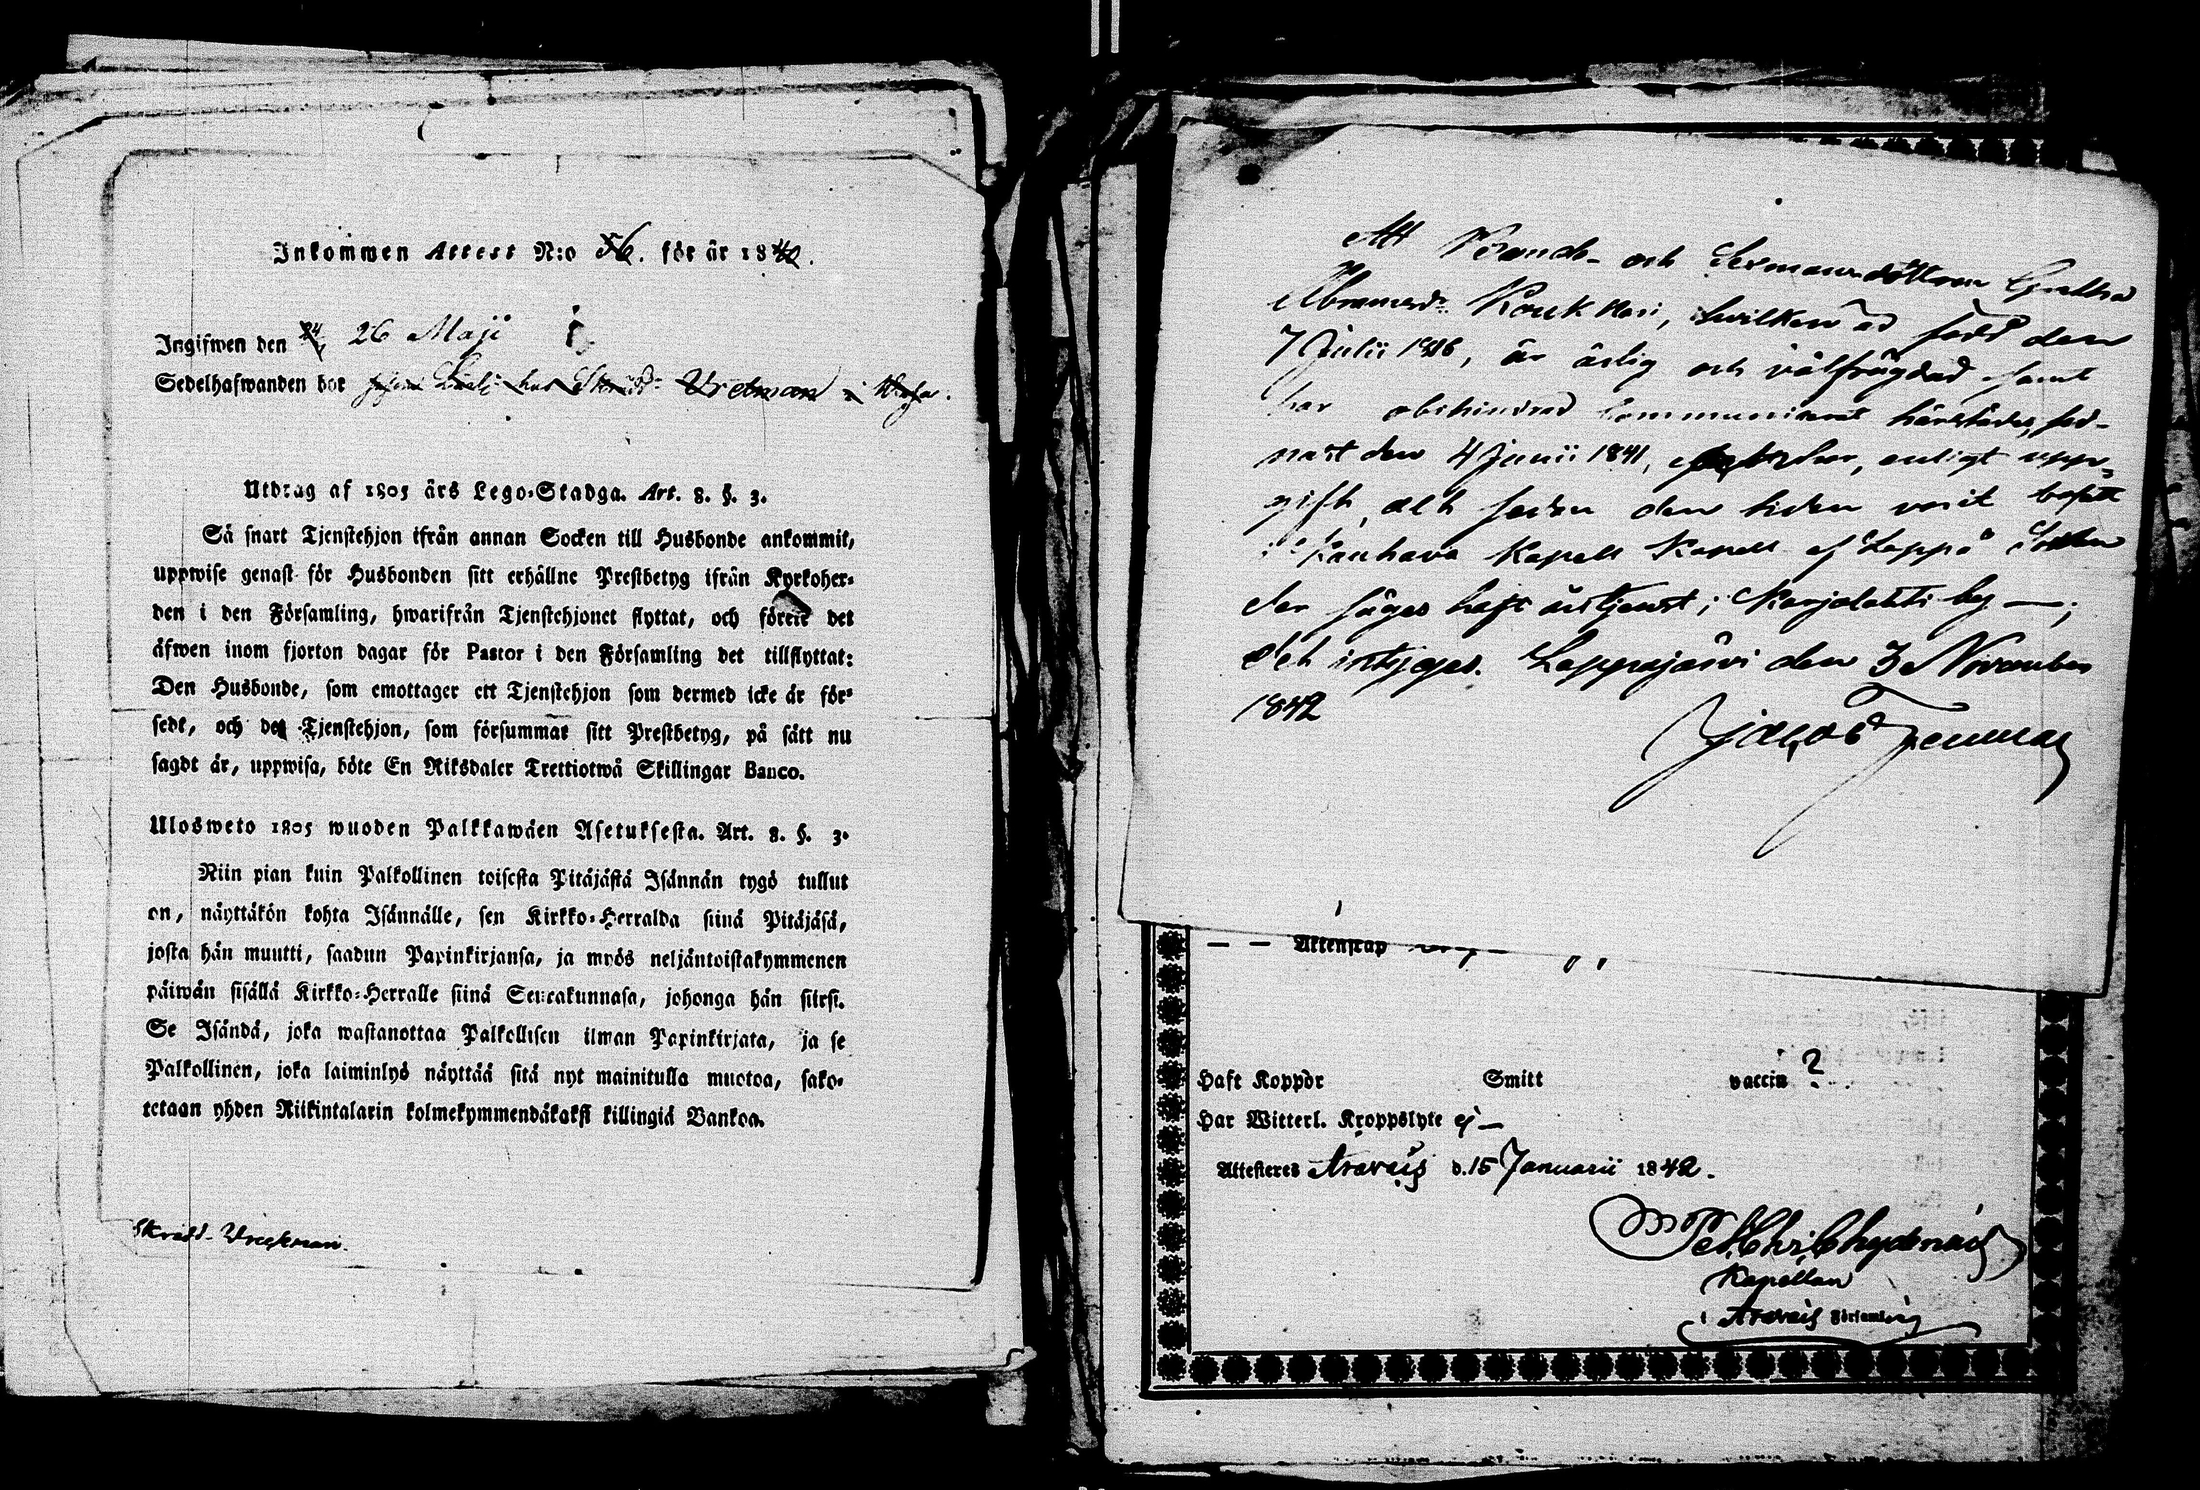 Inkommen Attest N:o 56. för år 1842.
Ingifwen den 24 26 Maji
Sedelhafwanden bor hos Skrädd. Vretman i Wasa.
Utdrag af 1805 års Lego-Stadga. Art. 8. §. 3.
Så snart Tjenstehjon ifrån annan Socken till Husbonde ankommit,
uppwise genast för Husbonden sitt erhållne Prestbetyg ifrån Kyrkoher-
den i den Församling, hwarifrån Tjenstehjonet flyttat, och förete det
äfwen inom fjorton dagar för Pastor i den Församling det tillflyttat:
Den Husbonde, som emottager ett Tjenstehjon som dermed icke är för-
sedt, och det Tjenstehjon, som försummar sitt Prestbetyg, på sätt nu
sagdt är, uppwisa, böte En Riksdaler Trettiotwå Skillingar Banco.
Ulosweto 1805 wuoden Palkkawäen Asetuksesta. Art. 8. §. 3.
Niin pian kuin Palkollinen toisesta Pitäjästä Isännän tygö tullut
on, näyttäkön kohta Isännälle, sen Kirkko-Herralda siinä Pitäjäsä,
josta hän muutti, saadun Papinkirjansa, ja myös neljäntoistakymmenen
päiwän sisällä Kirkko-Herralle siinä Seurakunnasa, johonga hän siirsi.
Se Isändä, joka wastanottaa Palkollisen ilman Papinkirjata, ja se
Palkollinen, joka laiminlyö näyttää sitä nyt mainitulla muotoa, sako-
tetaan yhden Riikintalarin kolmekymmendäkaksi killingiä Bankoa.
Skrädd. Vretman.
Att Bonde- och dottren Gretha
Abramsd:r Koukkari, hvilken är född den
7 Julii 1816, är ärlig och välfrägdad samt
har obehindrad communicerat härstädes, sed-
nast den 4 Junii 1841, enligt upp-
gift, allt sedan den tiden varit bosatt
i Kauhava Kapell Kapell af Lappo Socken
der säges haft årstjenst i Karjalahti by —;
det intygas. Lappajärvi den 3 November
1842
Jacob Fennar
— — Aktenskap
Haft Koppor Smitt vaccin ?
Har Witterl. Kroppslyte ej —
Attesteres Oravais d. 15 Januarii 1842.
Chydenius
Kapellan
i Oravais Församling